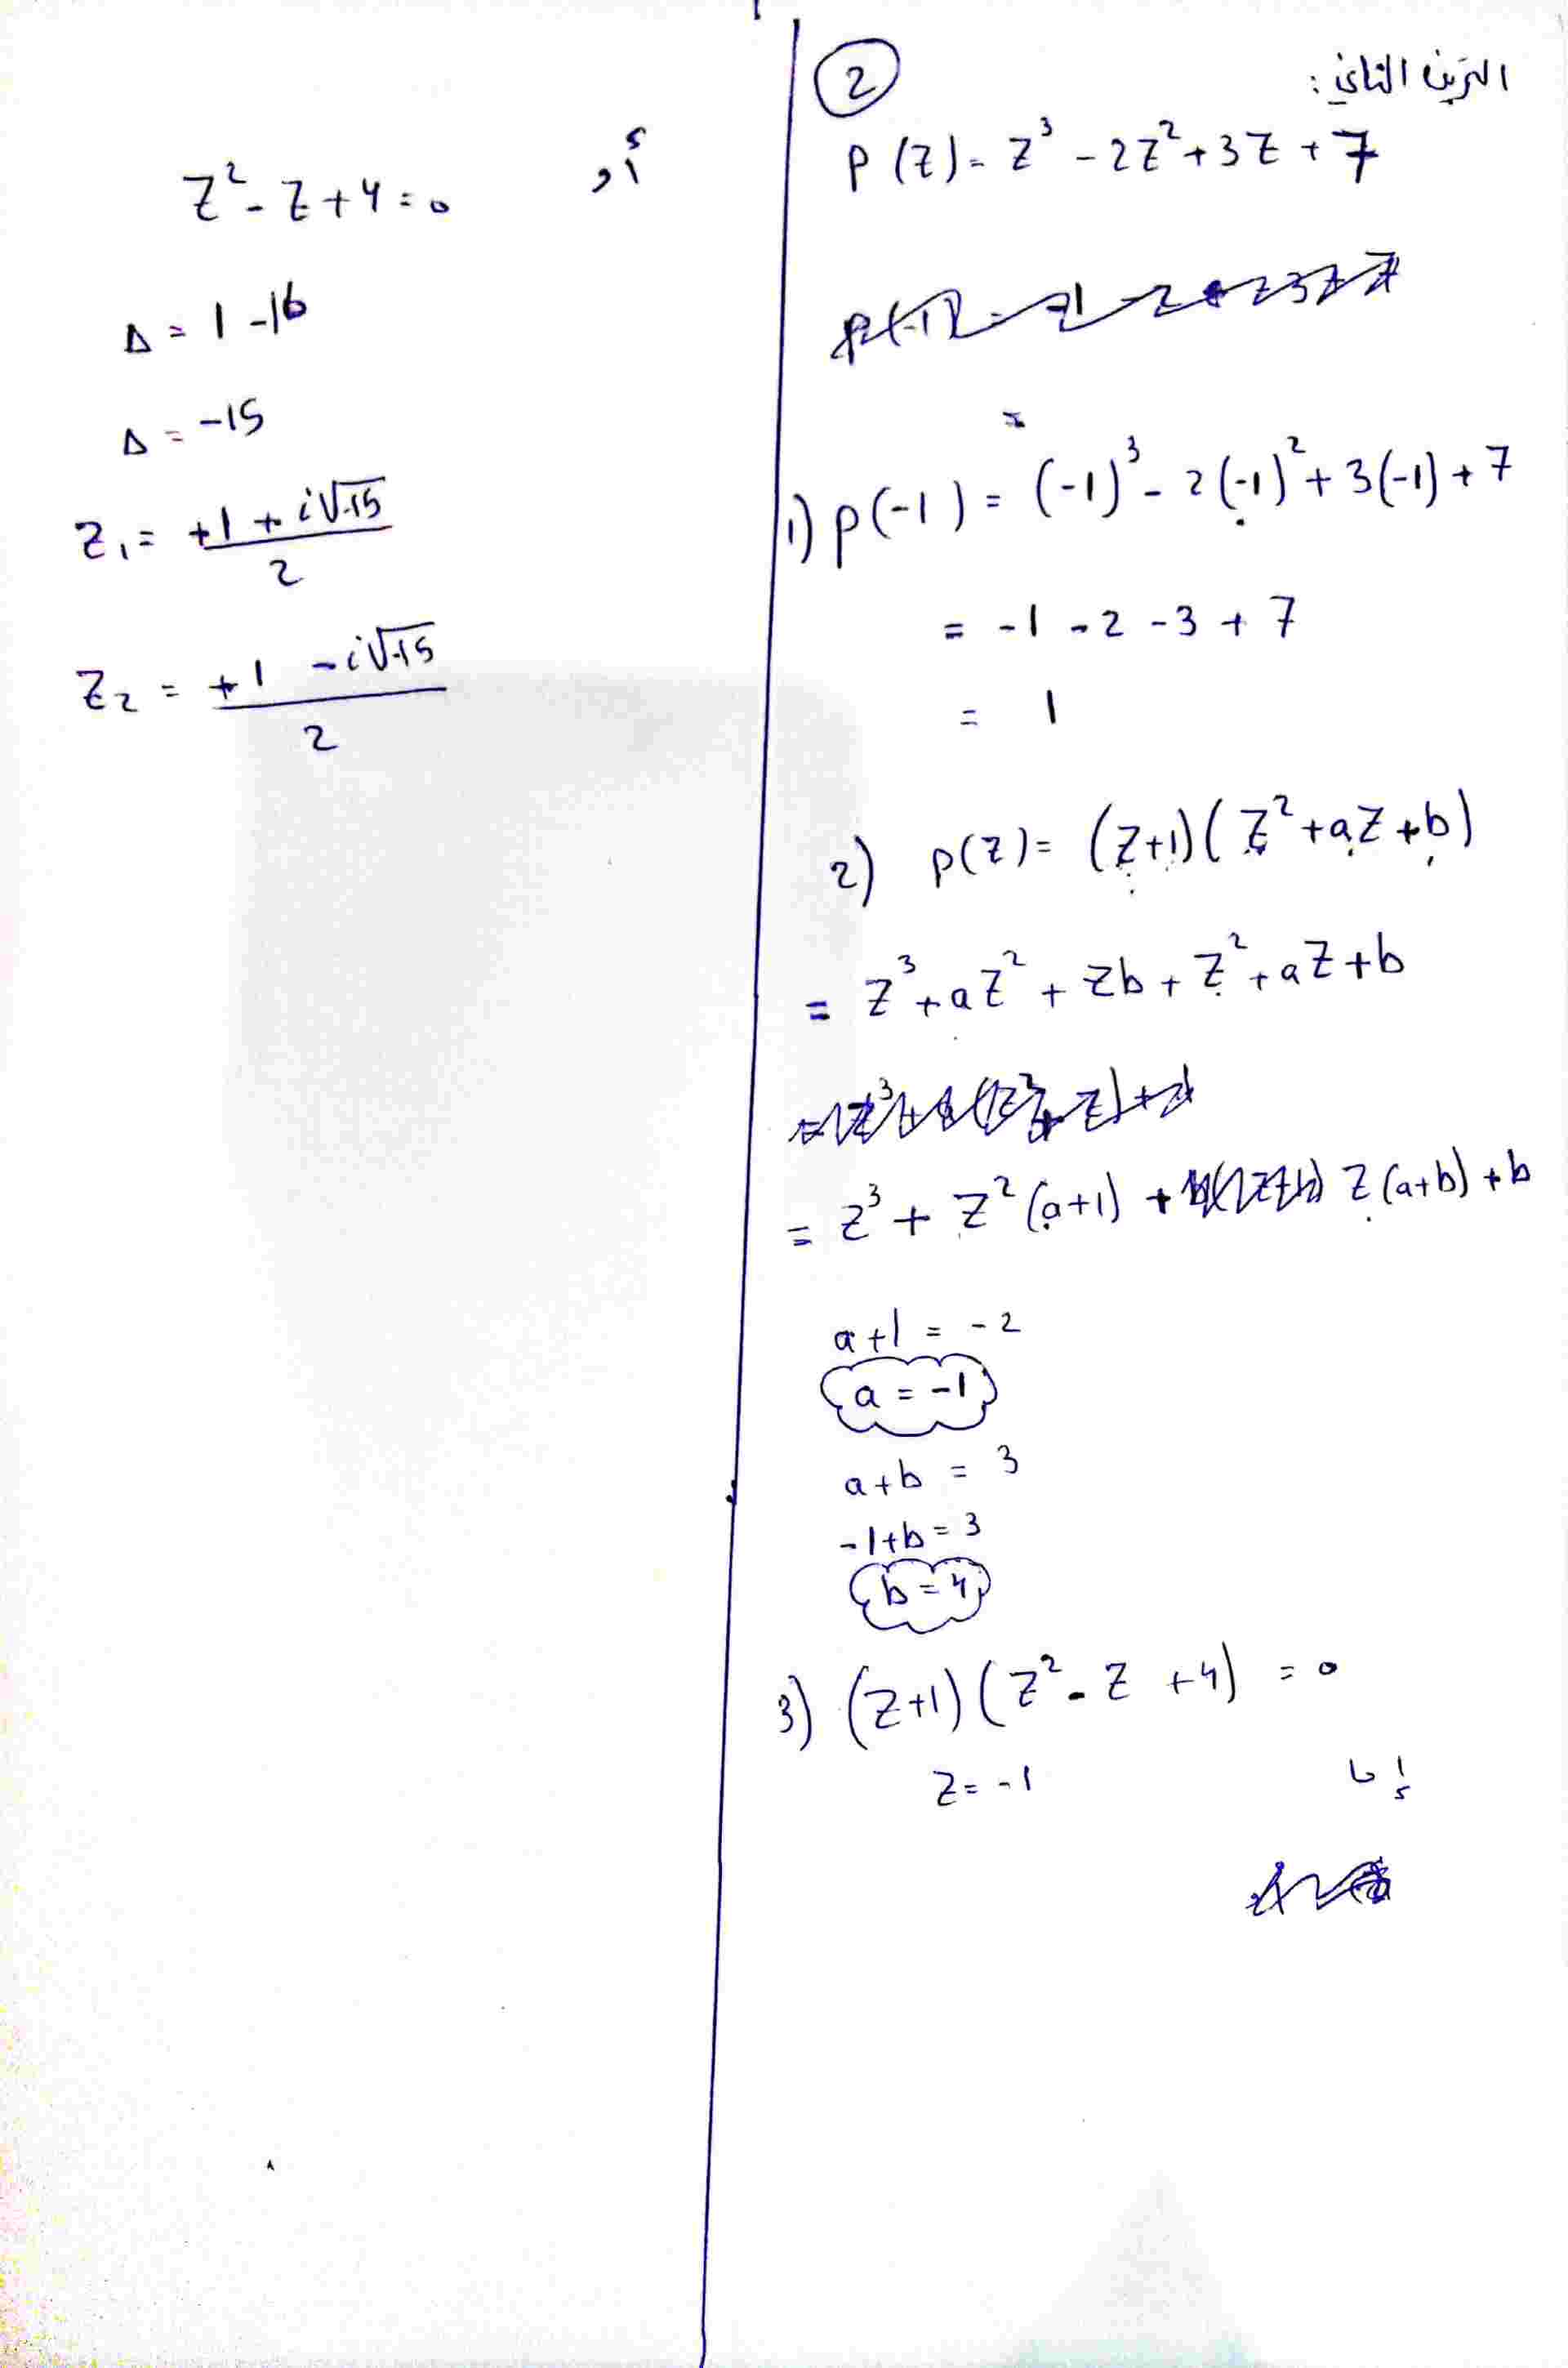 2
التمرين الثاني:
P(Z) = Z³ - 2Z² + 3Z + 7
=
1) P(-1) = (-1)³ - 2(-1)² + 3(-1) + 7
= -1 - 2 - 3 + 7
= 1
2) P(Z) = (Z+1)(Z² + aZ + b)
= Z³ + aZ² + Zb + Z² + aZ + b
= Z³ + Z²(a+1) + Z(a+b) + b
a+1 = -2
a = -1
a+b = 3
-1+b = 3
b = 4
3) (Z+1)(Z² - Z + 4) = 0
Z = -1
أو
Z² - Z + 4 = 0
Δ = 1 - 16
Δ = -15
Z₁ = +1 + i√-15 / 2
Z₂ = +1 - i√-15 / 2